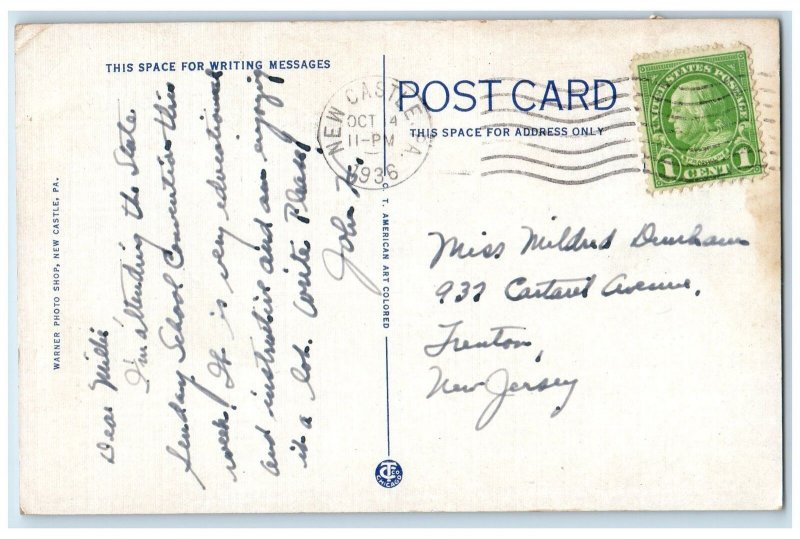 THIS SPACE FOR WRITING MESSAGES
POST CARD
THIS SPACE FOR ADDRESS ONLY
NEW CASTLE, PA.
OCT 4
11-PM
1936
UNITED STATES POSTAGE
1 CENT 1
WARNER PHOTO SHOP, NEW CASTLE, PA.
C. T. AMERICAN ART COLORED
Dear Millie
I'm attending the State
Sunday School Convention this
week! It is very educational
and instructive and am enjoying
it a lot. Write Please,
John
Miss Mildred Dunham
937 Carteret Avenue,
Trenton,
New Jersey
CHICAGO